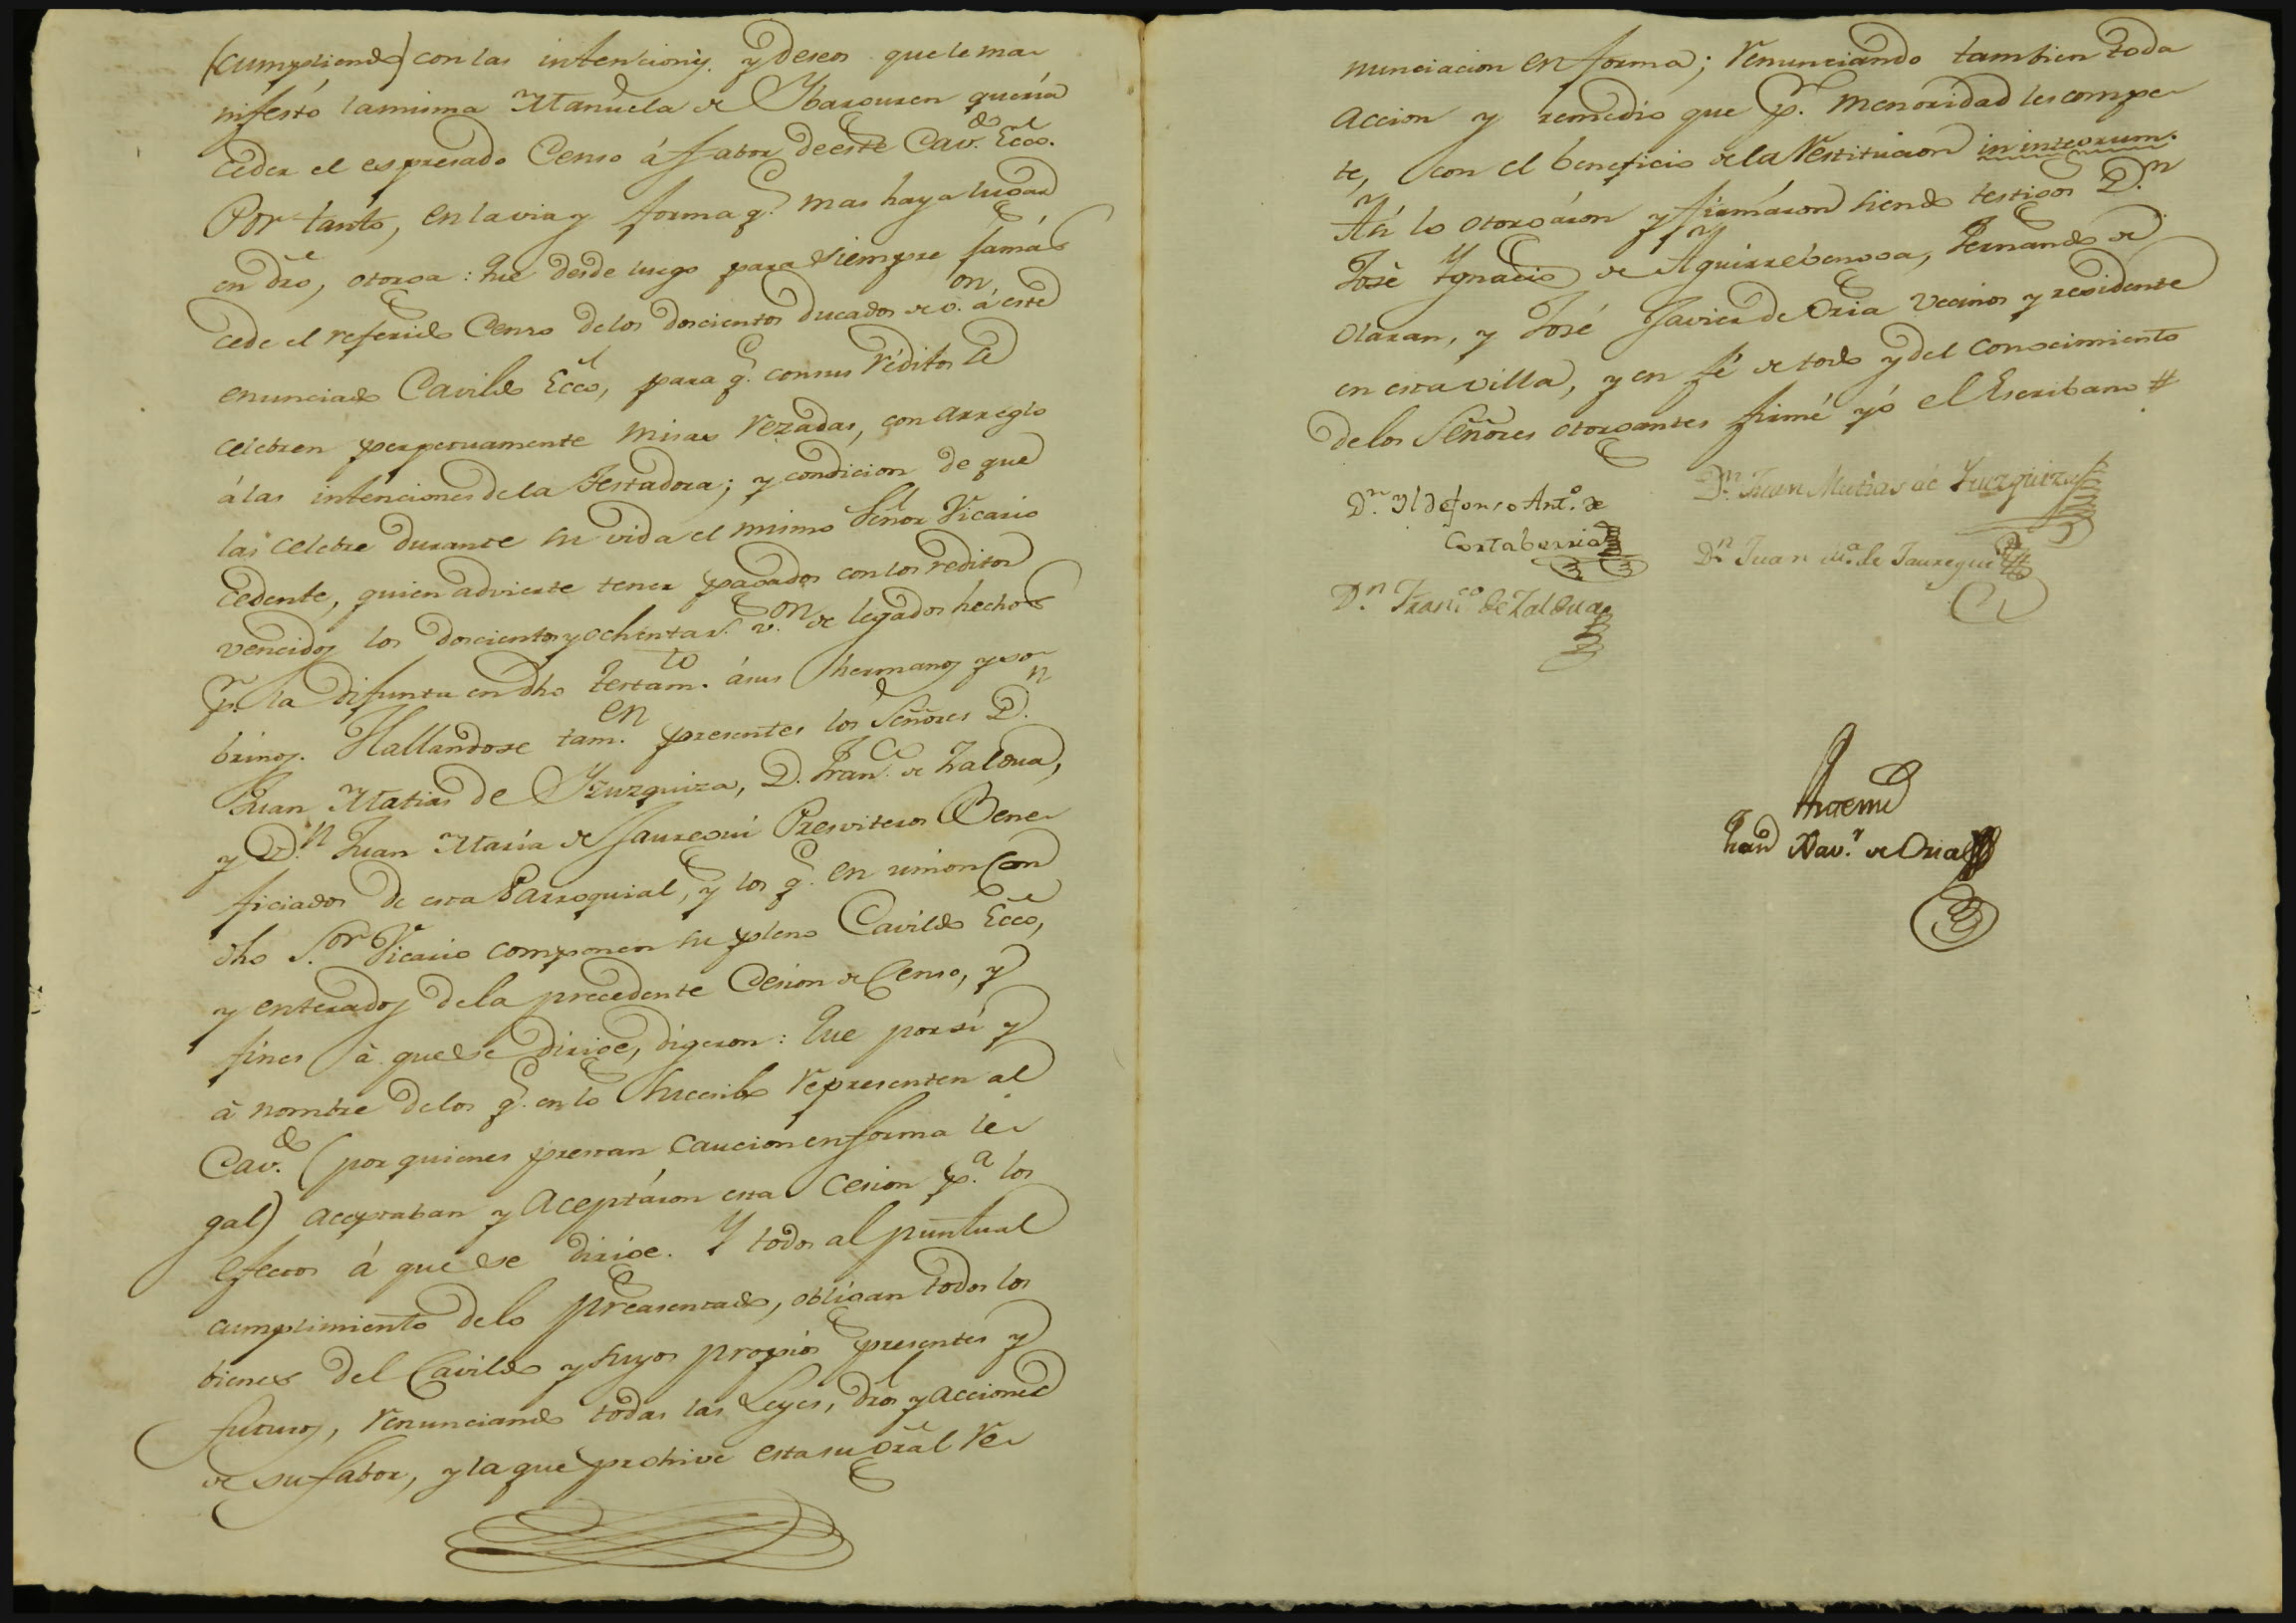 (cumpliendo) con las intenciones y deseos que le ma-
nifestó la misma Manuela de Ybarouren quería
ceder el espresado Censo á fabor de este Cav.do Ecco.
Por tanto, en la via y forma q.e mas haya lugar
en dro, otorga: Que desde luego para siempre jamás
cede el referido Censo de los doscientos ducados de v.on á este
enunciado Cavildo Ecco, para q.e con sus réditos se
celebren perpetuamente misas rezadas, con arreglo
á las intenciones de la Testadora; y condicion de que
las celebre durante su vida el mismo Señor Vicario
cedente, quien advierte tener pagados con los reditos
vencidos los doscientos y ochenta r.s v.on de legados hechos
p.r la difunta en dho testam.to á sus hermanos y so-
brinos. Hallandose tam.en presentes los Señores D.n
Juan Matias de Yzuzquiza, D. Fran.co de Zaldua,
y D.n Juan María de Jauregui Presviteros Bene-
ficiados de esta Parroquial, y los q.e en union con
dho S.or Vicario componen su pleno Cavildo Ecco,
y enterados de la precedente Cesion de Censo, y
fines á que se dirige, digeron: Que por sí y
á nombre de los q.e en lo succesibo representen al
Cav.do (por quienes prestan caucion en forma le-
gal) aceptaban y aceptáron esta cesion p.a los
efectos á que se dirige. Y todos al puntual
cumplimiento de lo preasentado, obligan todos los
bienes del Cavildo y suyos propios presentes y
futuros, renunciando todas las Leyes, dros y acciones
de su fabor, y la que prohive esta su gral re-
nunciacion en forma; renunciando tambien toda
accion y remedio que p.r menoridad les compe-
te, con el beneficio de la restitucion in integrum.
Así lo otorgáron y firmáron siendo testigos D.n
José Ygnacio de Aguirrebengoa, Fernando de
Olaran, y José Javier de Oria vecinos y residente
en esta villa, y en fé de todo y del conocimiento
de los Señores otorgantes firmé yó el Escribano #
D.n Yldefonso Ant.o de
Cortaberria
D.n Juan Matias de Yzuzquiza
D.n Juan M.a de Jauregui
D.n Fran.co de Zaldua
Antemi
Juan Xav.r de Oria